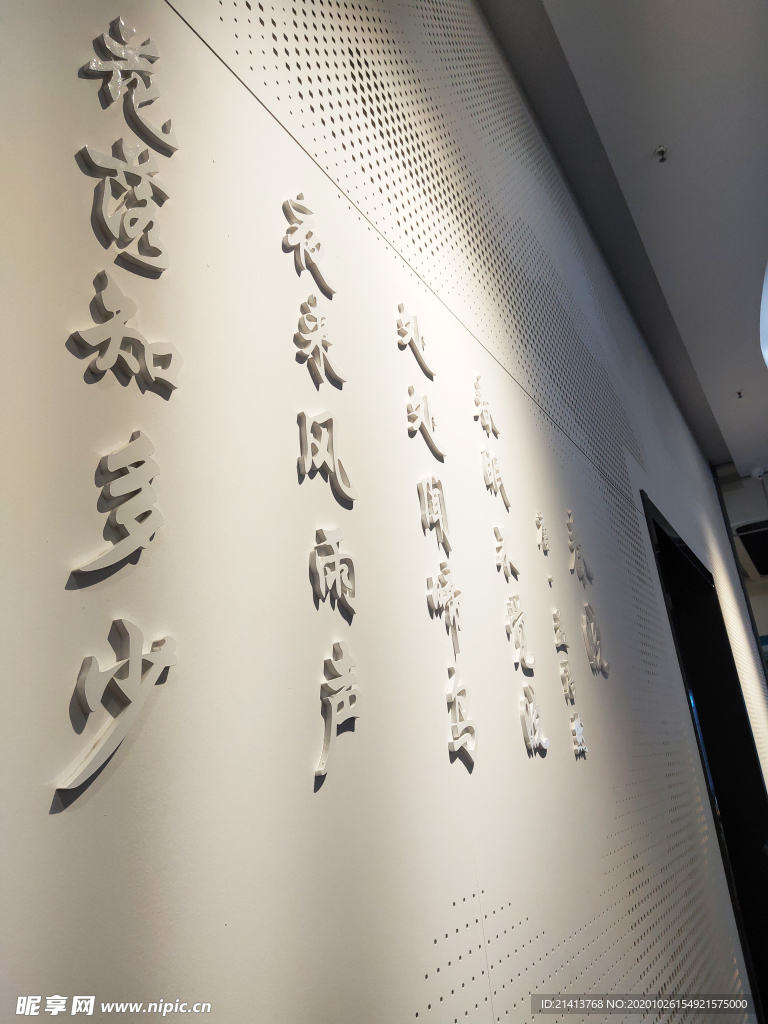 春晓
唐·孟浩然
春眠不觉晓
处处闻啼鸟
夜来风雨声
花落知多少
昵享网 www.nipic.cn
ID:21413768 NO:20201026154921575000